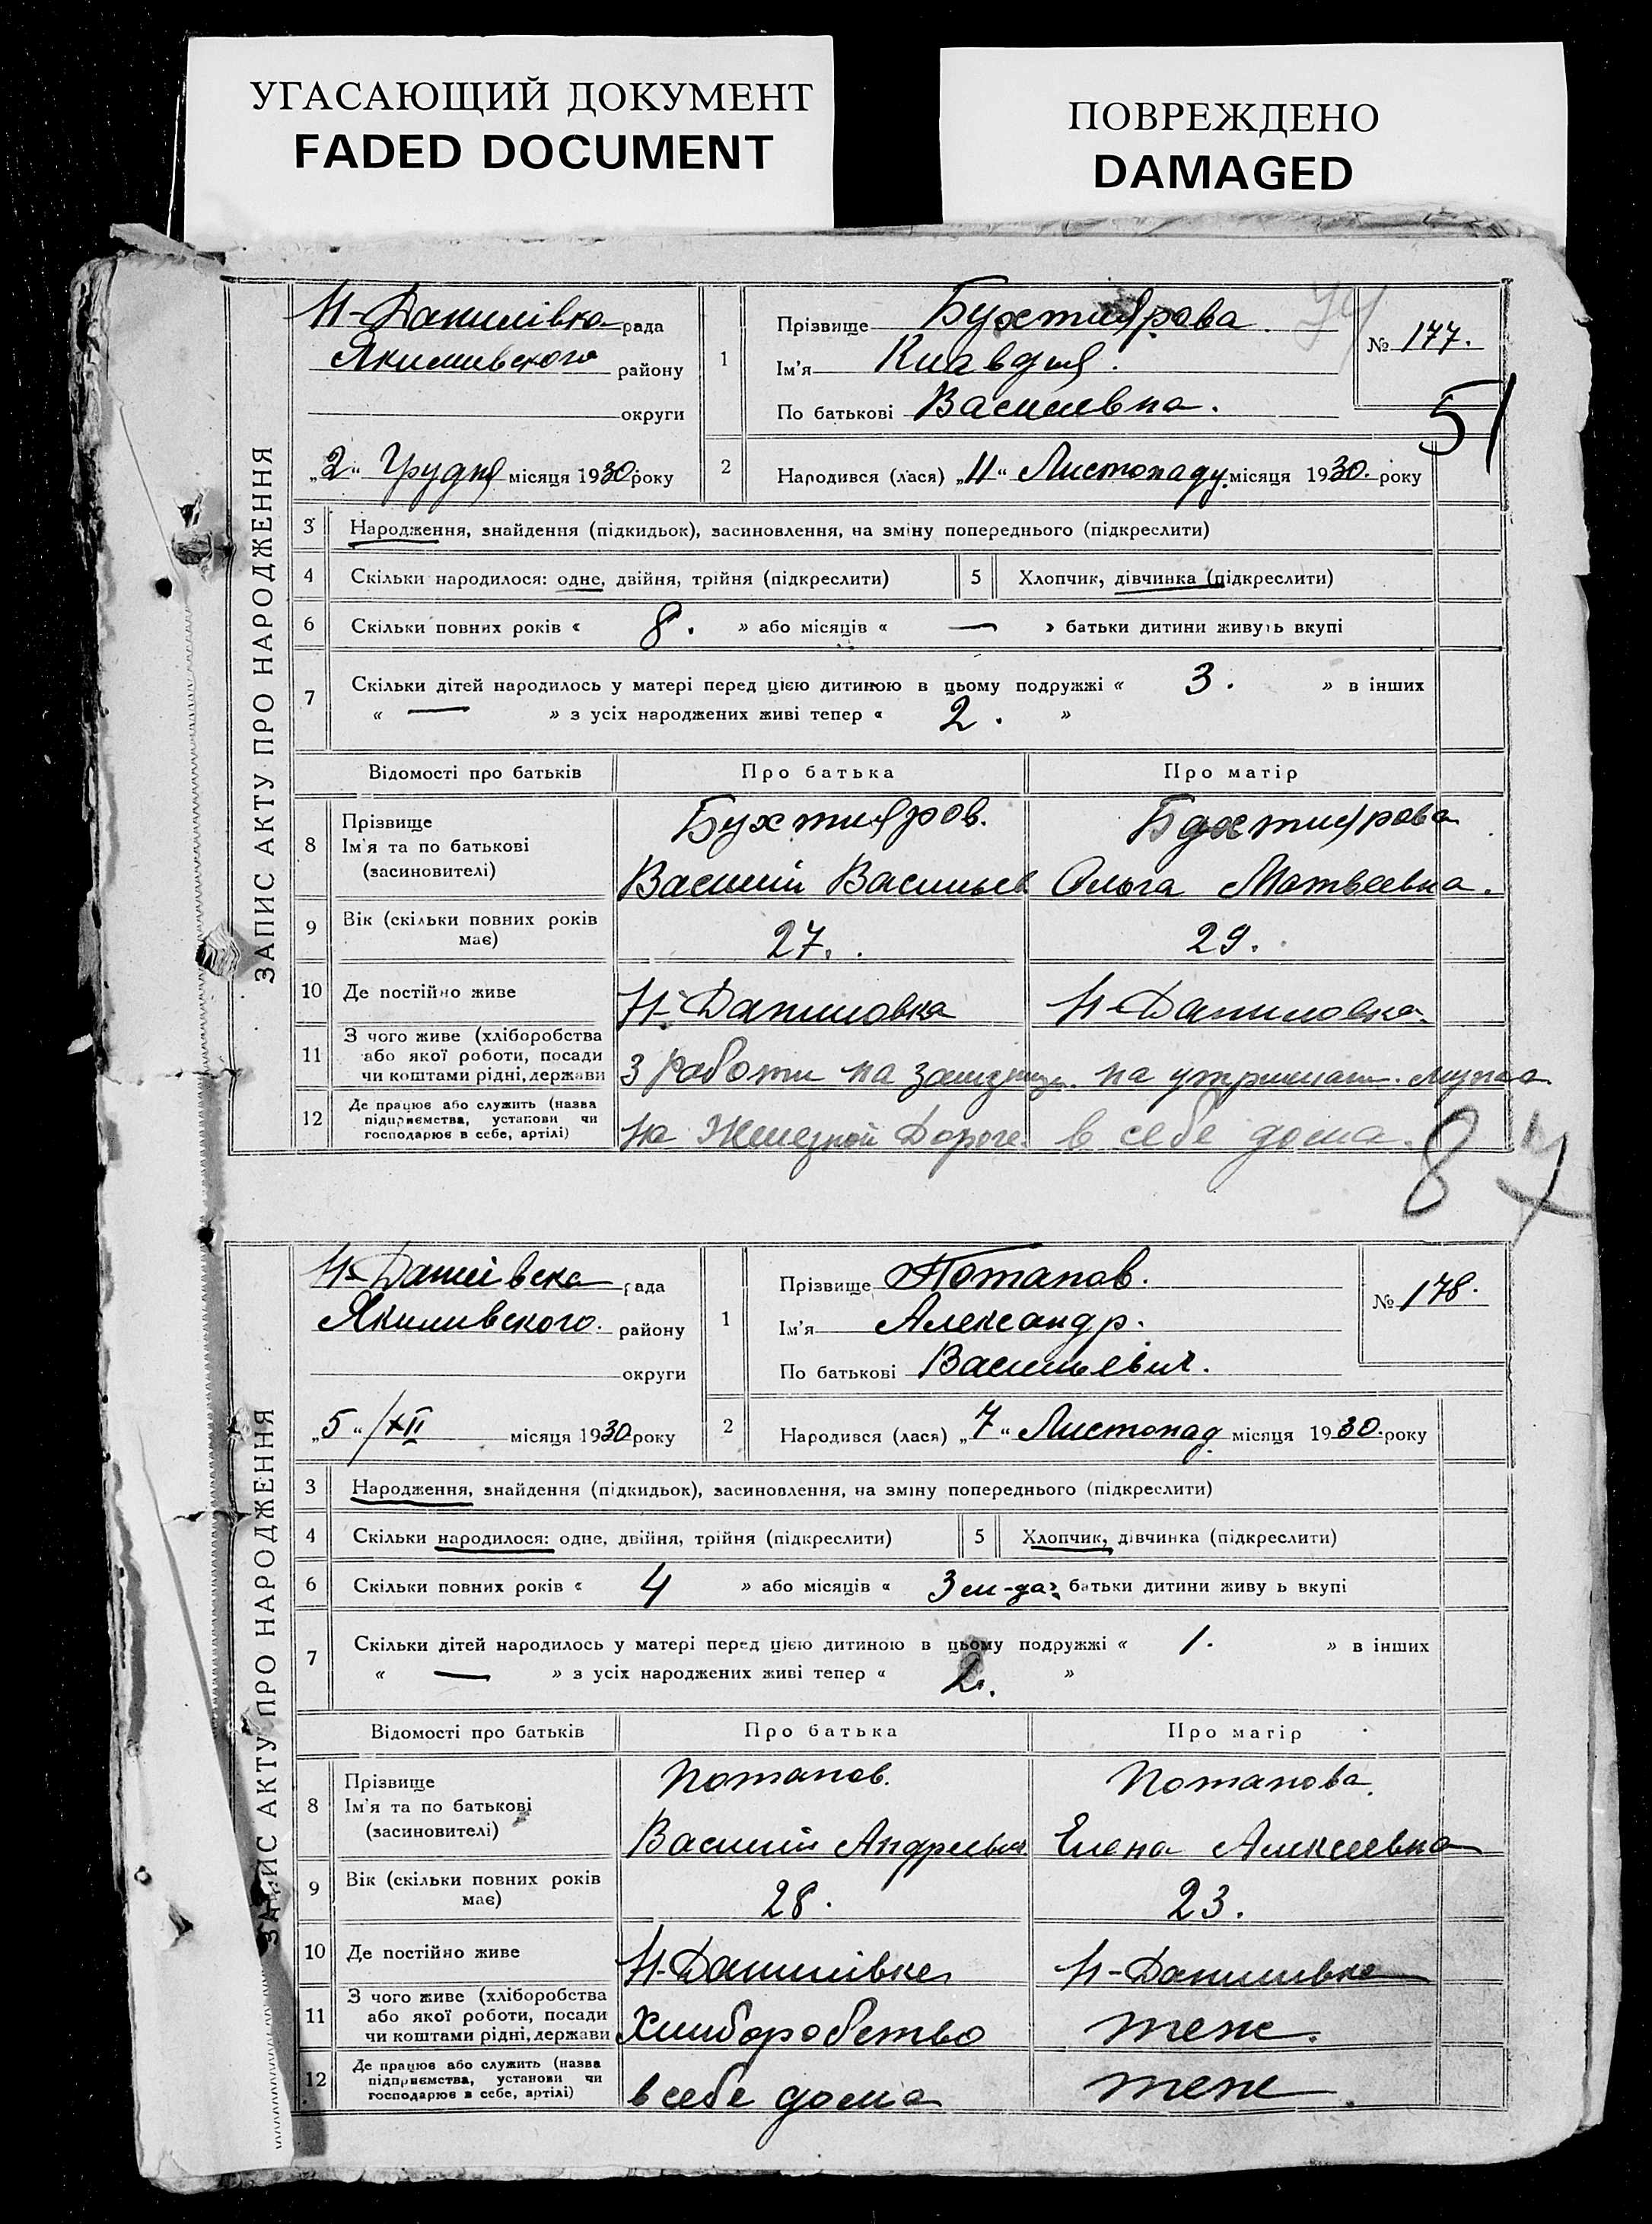 УГАСАЮЩИЙ ДОКУМЕНТ
FADED DOCUMENT
ПОВРЕЖДЕНО
DAMAGED
ЗАПИС АКТУ ПРО НАРОДЖЕННЯ
Н-Данилівка рада
Якимівського району
округи
„2“ Грудня місяця 1930 року
1 Прізвище Бухтиярова
Ім'я Клавдия.
По батькові Василевна.
№ 177.
51
2 Народився (лася) „11“ Листопаду місяця 1930. року
3 Народження, знайдення (підкидьок), засиновлення, на зміну попереднього (підкреслити)
4 Скільки народилося: одне, двійня, трійня (підкреслити) 5 Хлопчик, дівчинка (підкреслити)
6 Скільки повних років « 8. » або місяців « — » батьки дитини живуть вкупі
7 Скільки дітей народилось у матері перед цією дитиною в цьому подружжі « 3. » в інших
« — » з усіх народжених живі тепер « 2. »
Відомості про батьків Про батька Про матір
8 Прізвище
Ім'я та по батькові
(засиновителі)
Бухтияров. Бухтиярова
Василий Васильев Ольга Матвеевна.
9 Вік (скільки повних років має) 27. 29.
10 Де постійно живе Н-Даниловка Н-Даниловка
11 З чого живе (хліборобства
або якої роботи, посади
чи коштами рідні, держави
З работи на на утриман. мужа
12 Де працює або служить (назва
підприємства, установи чи
господарює в себе, артілі)
на Железной Дороге. в себе дома.
87
ЗАПИС АКТУ ПРО НАРОДЖЕННЯ
Н-Данивска рада
Якимивского. району
округи
„5“ /XII місяця 1930 року
1 Прізвище Потапов.
Ім'я Александр.
По батькові Васильевич.
№ 178.
2 Народився (лася) „7“ Листопад місяця 1930. року
3 Народження, знайдення (підкидьок), засиновлення, на зміну попереднього (підкреслити)
4 Скільки народилося: одне, двійня, трійня (підкреслити) 5 Хлопчик, дівчинка (підкреслити)
6 Скільки повних років « 4 » або місяців « 3 м-ця » батьки дитини живуть вкупі
7 Скільки дітей народилось у матері перед цією дитиною в цьому подружжі « 1. » в інших
« — » з усіх народжених живі тепер « 2. »
Відомості про батьків Про батька Про матір
8 Прізвище
Ім'я та по батькові
(засиновителі)
Потапов. Потапова.
Василий Андреевич Елена Алексеевна
9 Вік (скільки повних років має) 28. 23.
10 Де постійно живе Н-Данилівке Н-Даниливке
11 З чого живе (хліборобства
або якої роботи, посади
чи коштами рідні, держави
Хлиборобство теже.
12 Де працює або служить (назва
підприємства, установи чи
господарює в себе, артілі)
в себе дома теже.